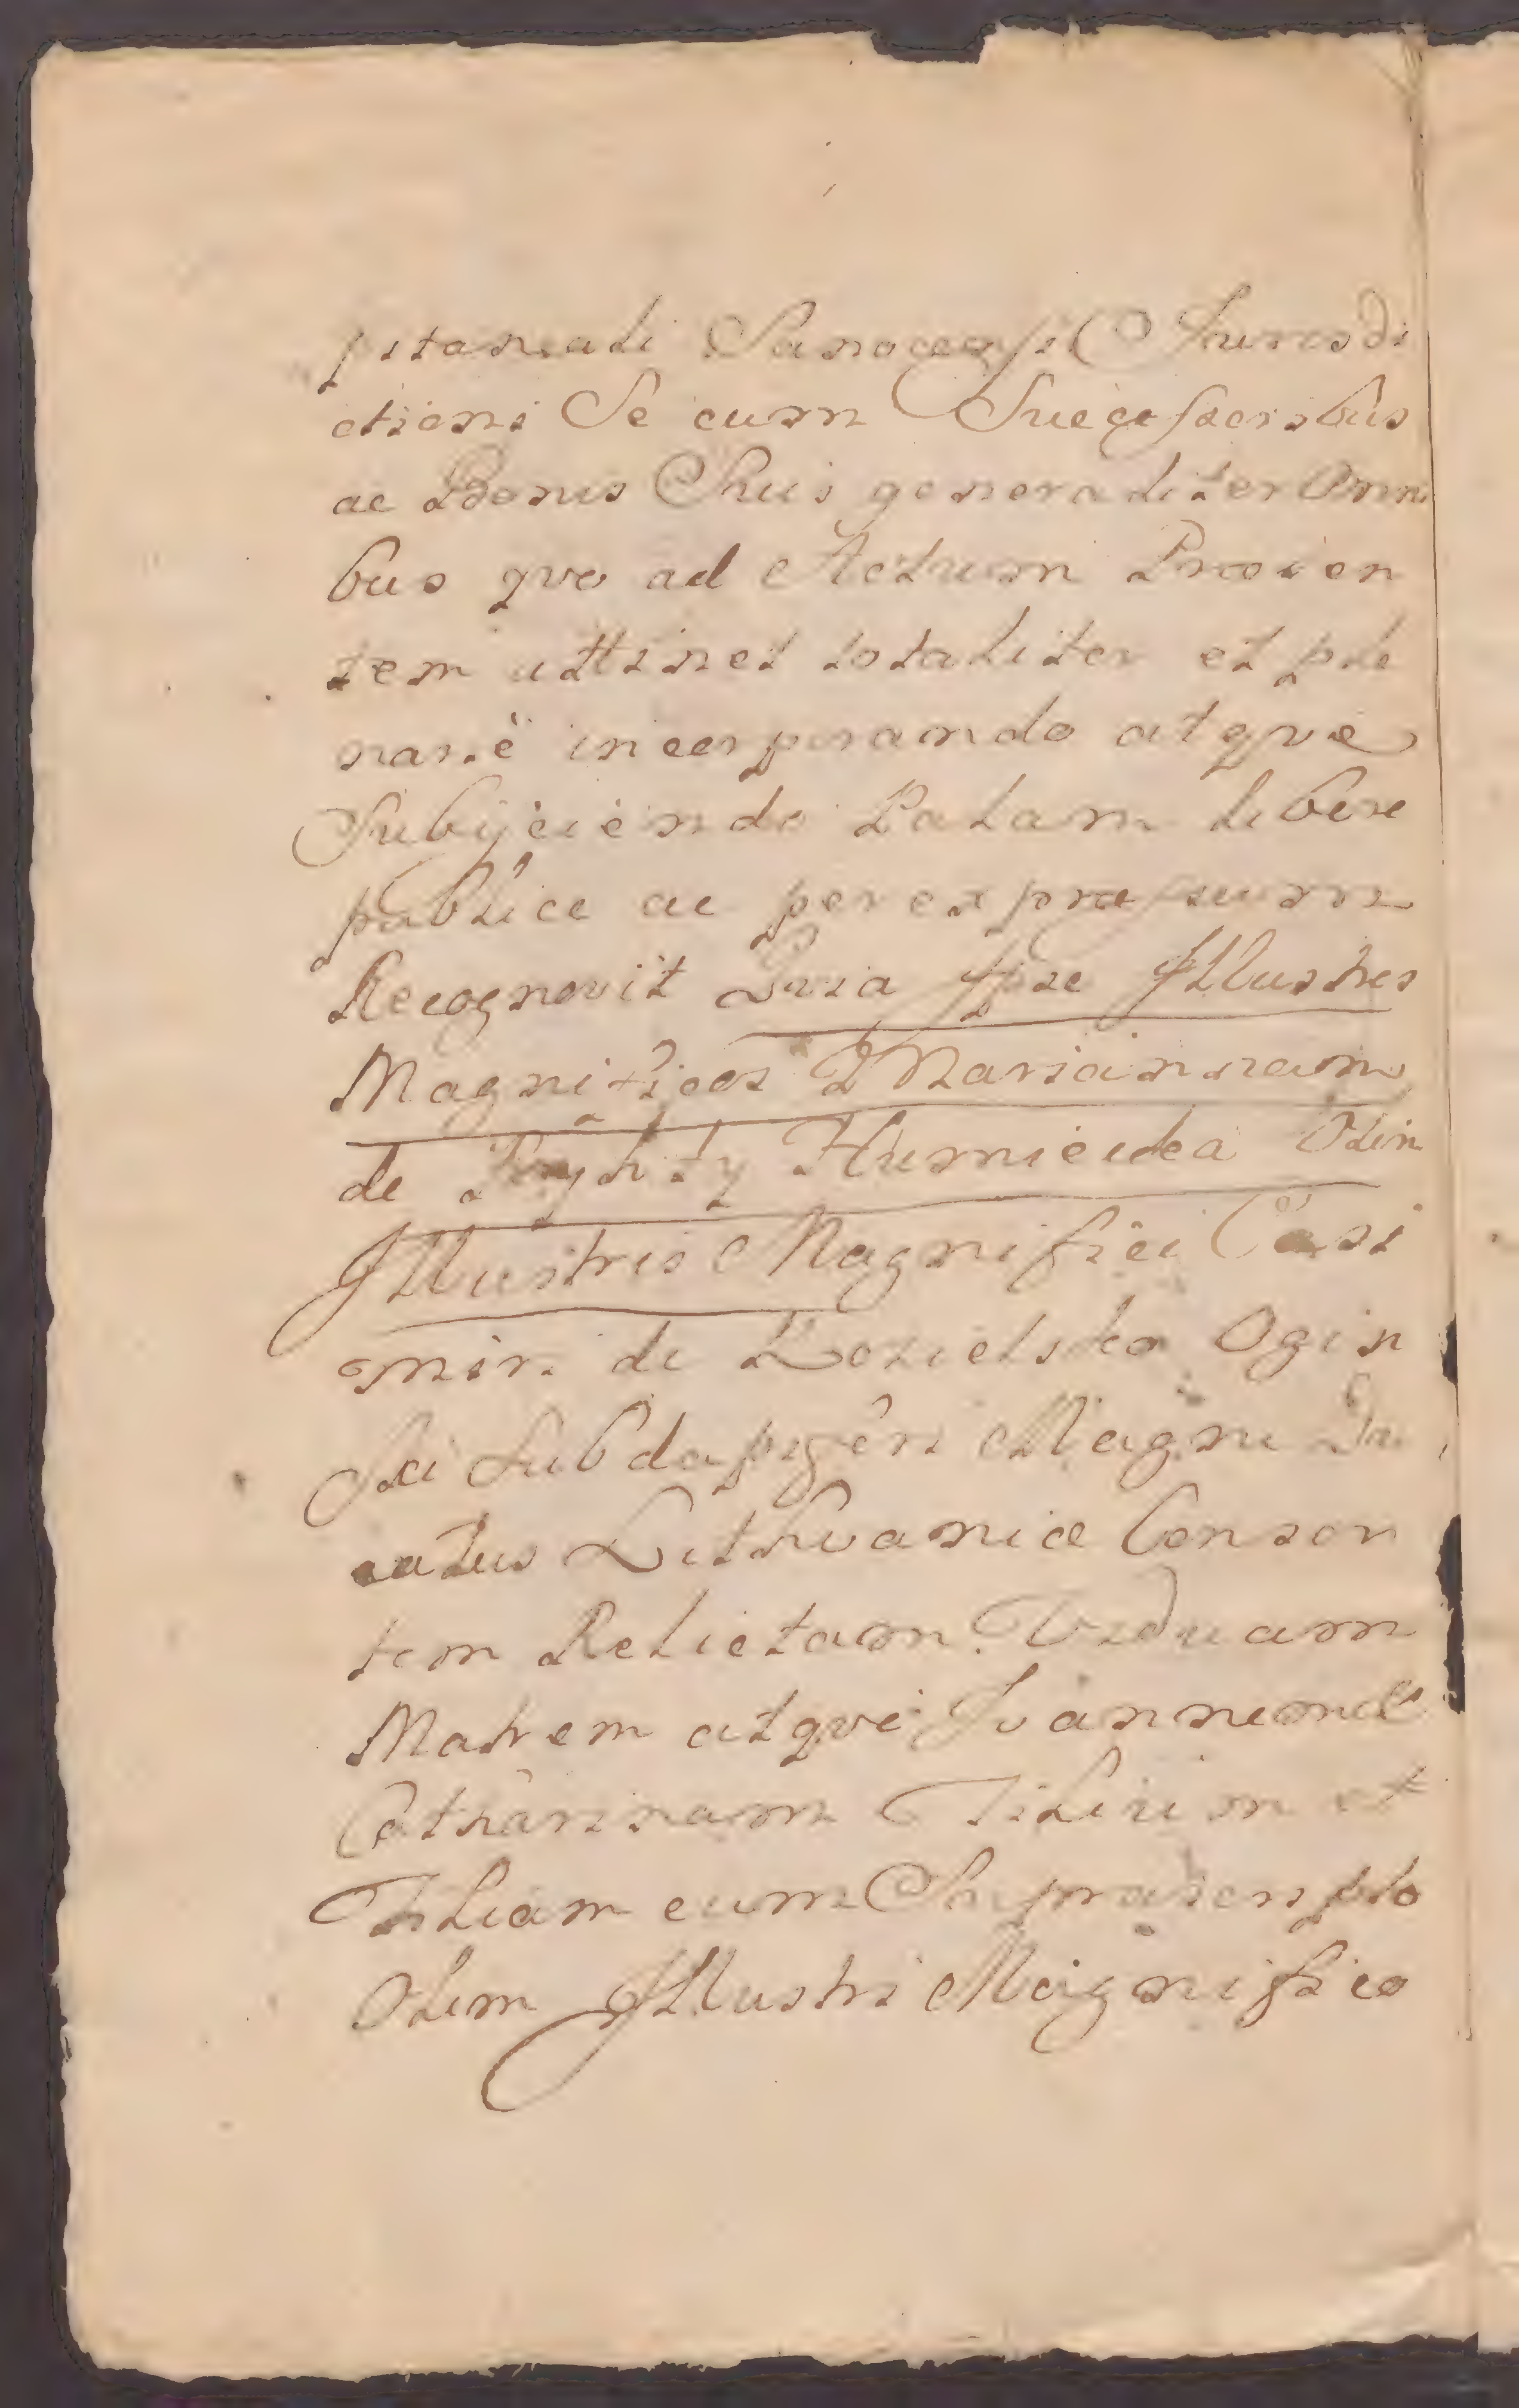 pitaneali Sanocensi Jurisdi
ctioni Se cum Successoribus
ac Bonis Suis generaliter Omni
bus qvo ad Actum Præsen
tem attinet totaliter et ple
narie incorporando atqve
Subijciendo Palam libere
publice ac per expræssum
Recognovit Qvia Ipse Illustres
Magnificos Mariannam
de Humniecka Olim
Illustris Magnifici Casi
miri de Kozielsko Ogin
ski Subdapiferi Magni Du
catus Lithvaniæ Conson
tem Relictam Viduam
Matrem atqve Joannem et
Catharinam Filium et
Filiam cum Suprascripto
Olim Illustri Magnifico